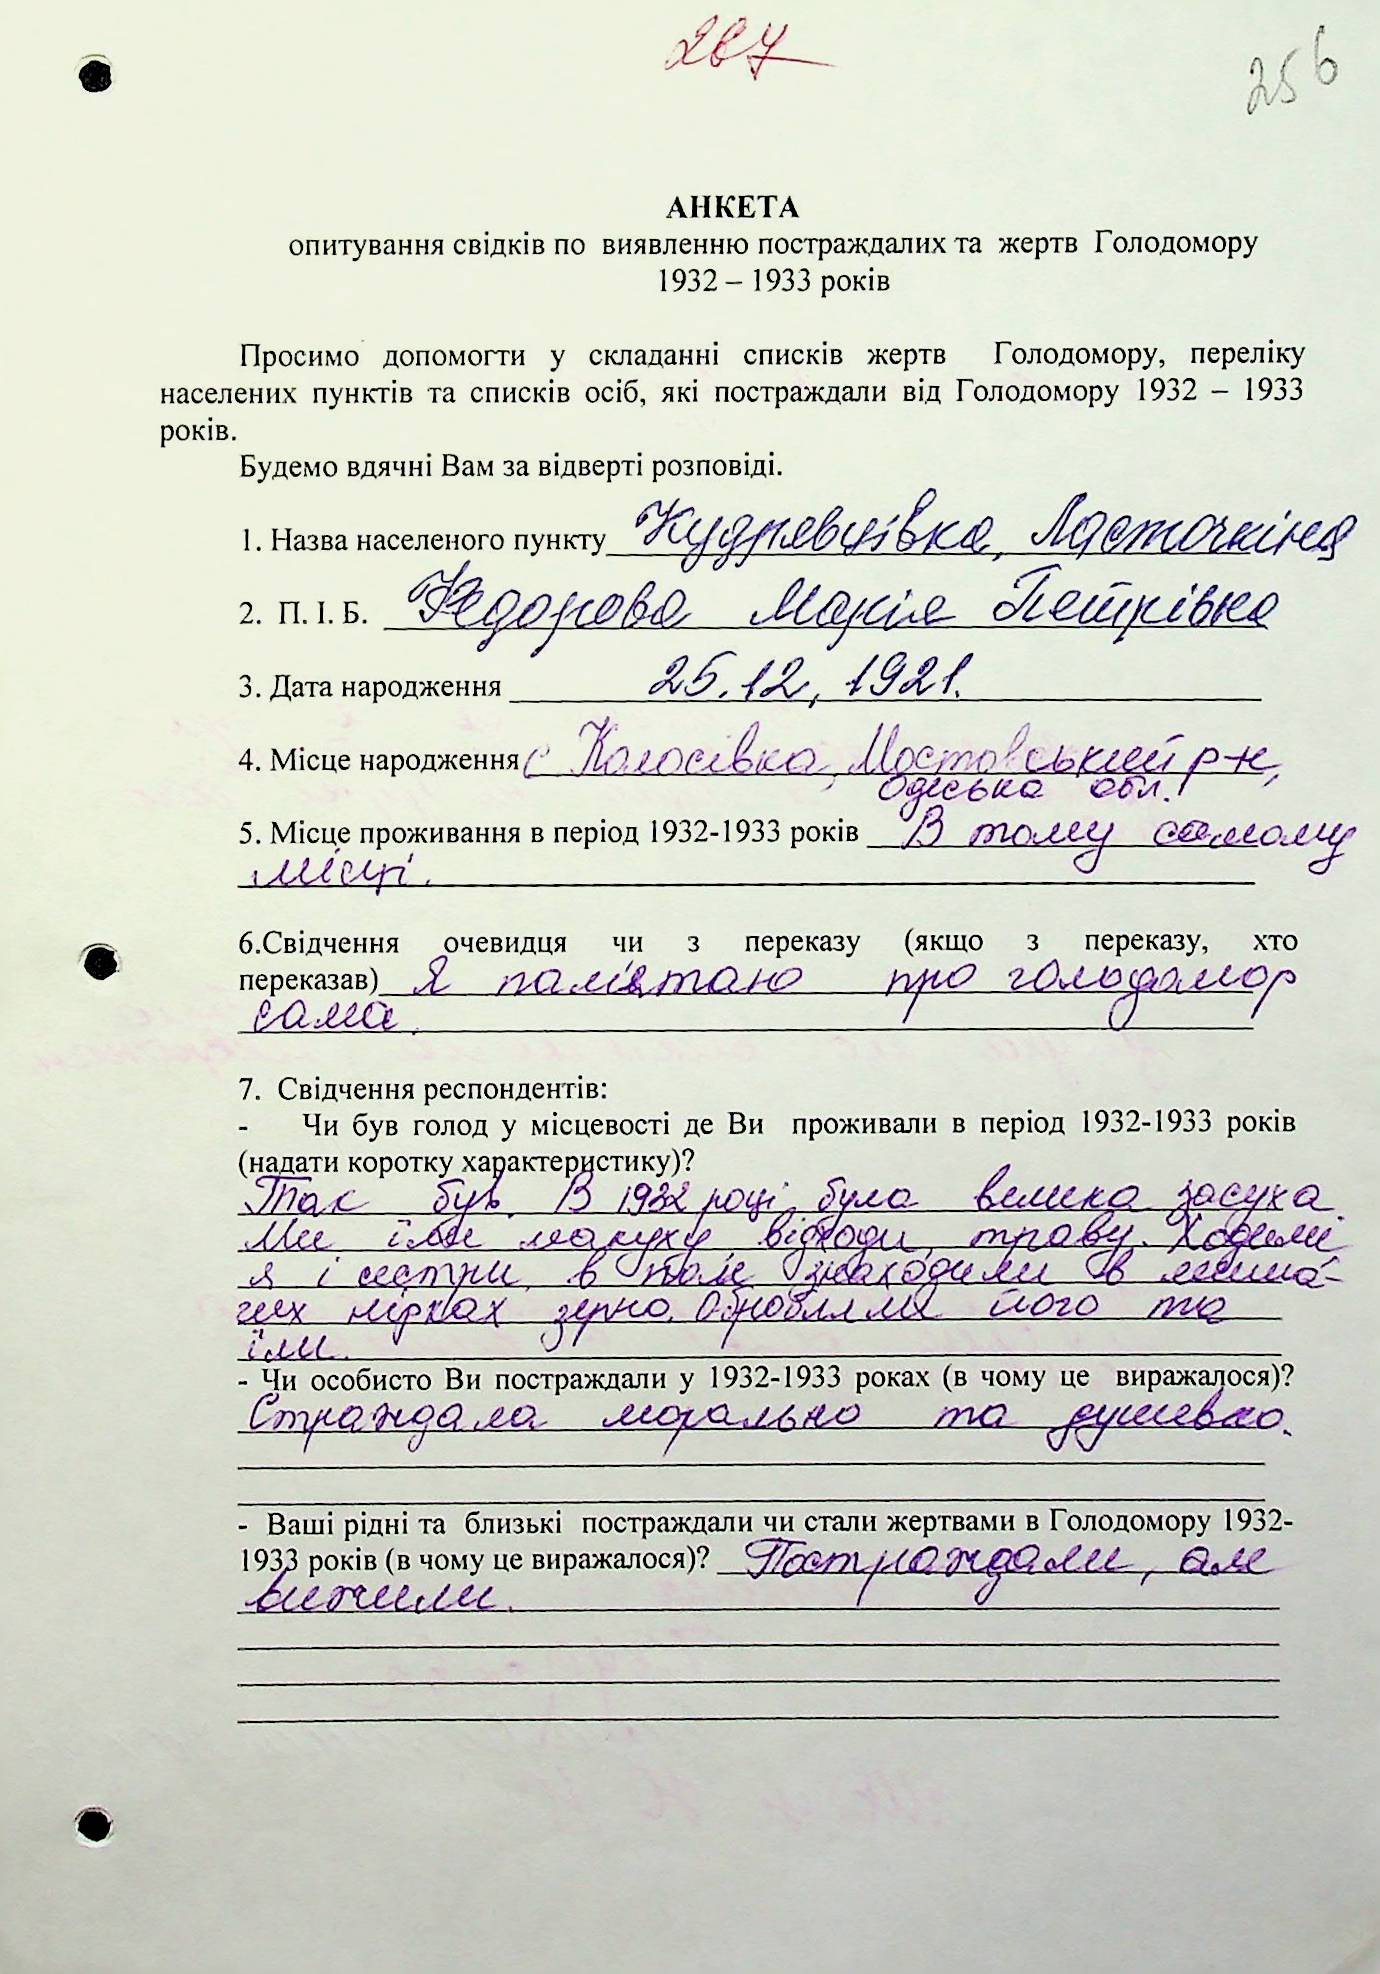 267
256
АНКЕТА
опитування свідків по виявленню постраждалих та жертв Голодомору
1932 – 1933 років
Просимо допомогти у складанні списків жертв Голодомору, переліку
населених пунктів та списків осіб, які постраждали від Голодомору 1932 – 1933
років.
Будемо вдячні Вам за відверті розповіді.
1. Назва населеного пункту Кудрявцівка, Ласточкіна
2. П. І. Б. Федорова Марія Петрівна
3. Дата народження 25.12, 1921.
4. Місце народження с Колосівка, Мостовський р-н,
Одеська обл.
5. Місце проживання в період 1932-1933 років В тому самому
місці.
6.Свідчення очевидця чи з переказу (якщо з переказу, хто
переказав) Я пам'ятаю про голодамор
сама.
7. Свідчення респондентів:
- Чи був голод у місцевості де Ви проживали в період 1932-1933 років
(надати коротку характеристику)?
Так був. В 1932 році була велика засуха.
Ми їли макуху, відходи, траву. Ходили
я і сестри в поле знаходили в миша-
чих нірках зерно. Обробляли його та
їли.
- Чи особисто Ви постраждали у 1932-1933 роках (в чому це виражалося)?
Страждала морально та душевно.
- Ваші рідні та близькі постраждали чи стали жертвами в Голодомору 1932-
1933 років (в чому це виражалося)? Постраждали, але
вижили.